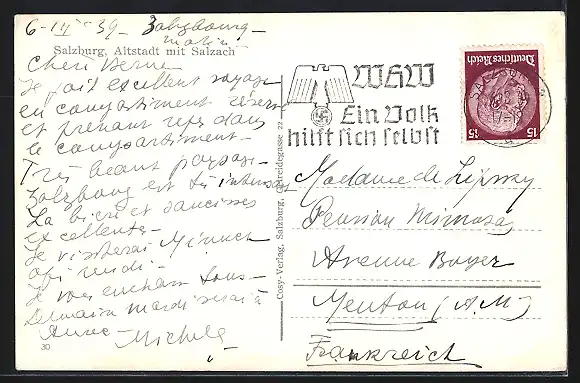 6-IV-39 - Salzbourg -
matin
Salzburg, Altstadt mit Salzach
Je fait excellent voyage
en compartiment réservé
et prenant repas dans
le compartiment -
Très beau paysage -
Salzbourg est très intéressant
La bière et saucisses
excellentes -
Je visiterai Munich
après midi -
Je vous embrasse tous -
Demain mardi serai à
Michel
30
Cosy-Verlag, Salzburg, Getreidegasse 22
WHW
Ein Volk
hilft sich selbst
Deutsches Reich
15 15
SALZBURG
Madame de Lipsky
Pension Mimosas
Avenue Boyer
Menton (A.M)
Frankreich